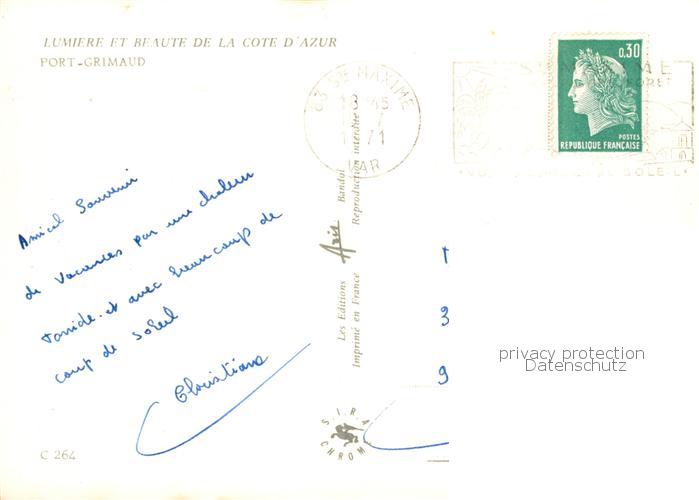 LUMIERE ET BEAUTE DE LA COTE D'AZUR
PORT-GRIMAUD
83 STE MAXIME
18 H45
71
VAR
0,30
POSTES
REPUBLIQUE FRANÇAISE
SOLEIL
Amical Souvenir
de Vacances par une chaleur
torride. et avec beaucoup de
coup de soleil
Christiane
Les Editions Aris Bandol
Imprimé en France Reproduction interdite
S.I.R.A.
CHROME
C 264
3
9
privacy protection
Datenschutz